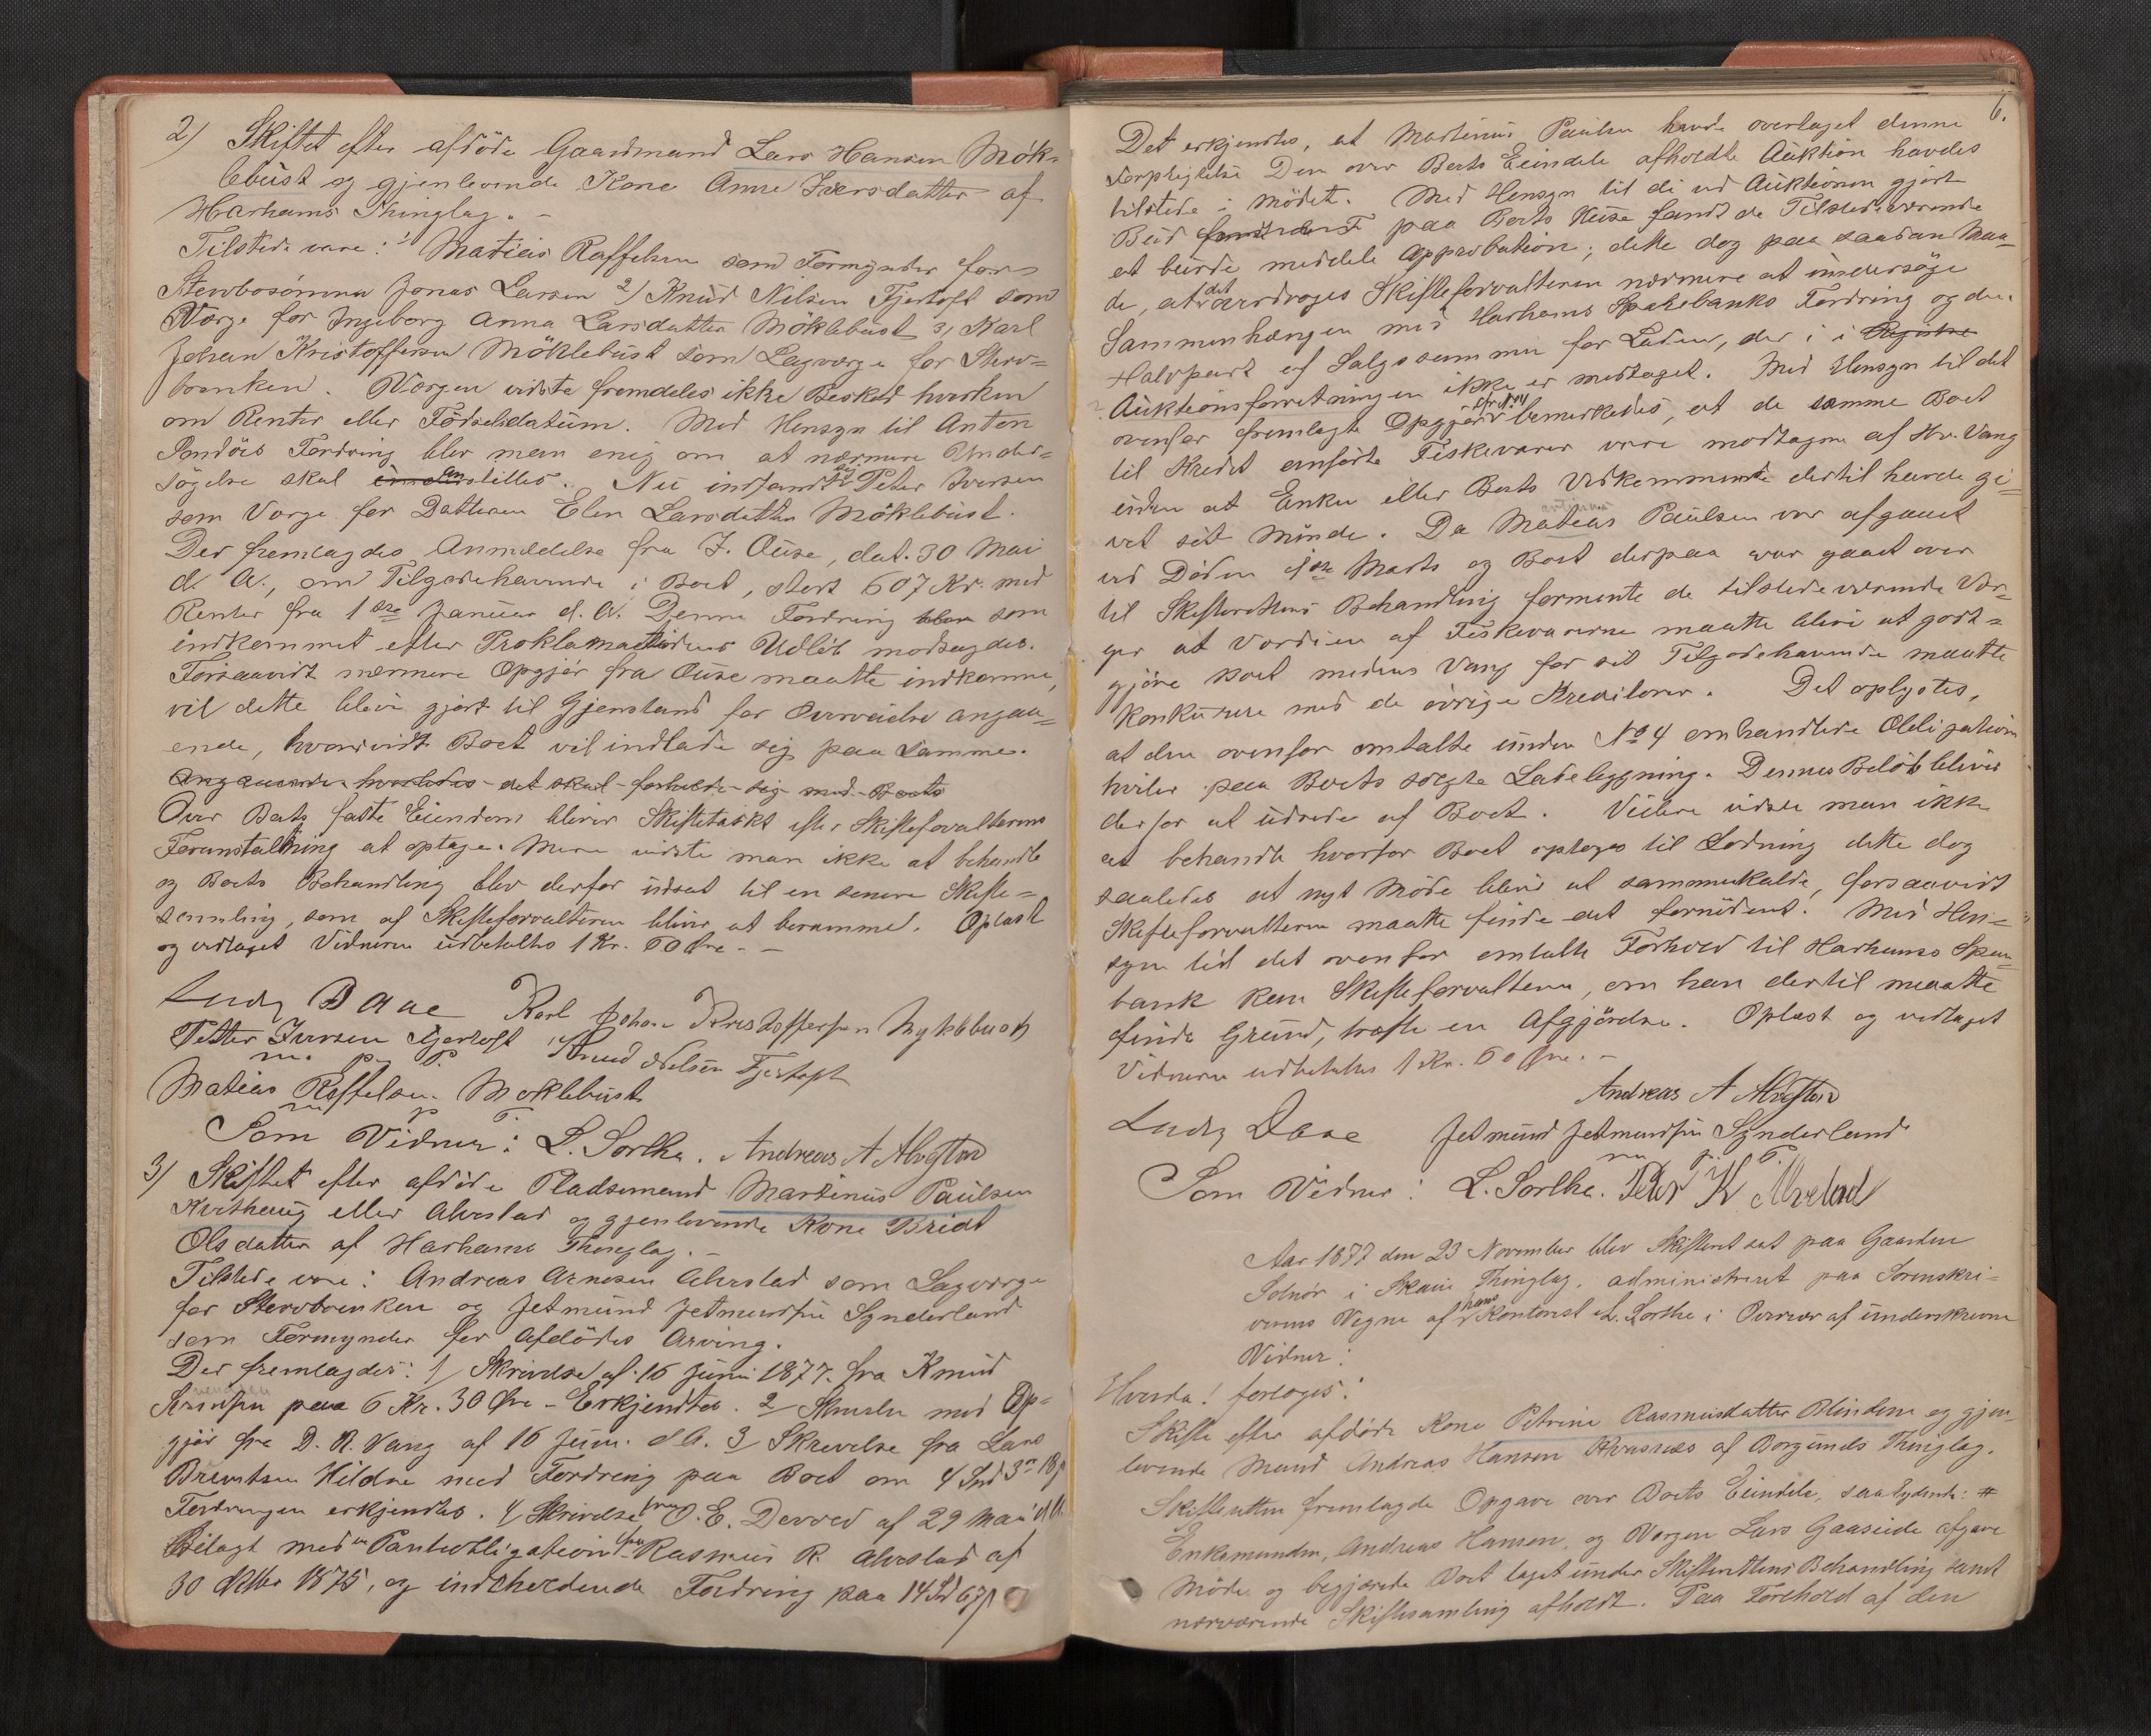 2) Skiftet efter afdöde Gaardmand Lars Hansen Mök-
lebust og gjenlevende Kone Anne Iversdatter af
Harhams Thinglag. -
Tilstede vare: 1/ Matias Raffelsen som Formynder for
Stervbosönnen Jonas Larsen 2) Knud Nilsen Fjertoft som
Værge for Ingeborg Anna Larsdatter Möklebust 3, Karl
Johan Kristoffersen Möklebust som Lagværge for Sterv=
boenken. Værgen vidste fremdeles ikke Besked hverken
om Renter eller Födselsdatum. Med Hensyn til Anton
Fordring blev man enig om at nærmere Under=
sögelse skal anstilles. Nu indfandt sig Peter Iversen
som Værge for Datteren Elen Larsdatter Möklebust.
Der fremlagdes Anmeldelse fra J. Ouse, dat. 30 Mai
d. A., om Tilgodehavende i Boet, stort 607 Kr. med
Renter fra 1ste Januar d. A. Denne Fordring blev som
indkommet efter Proklamatidens Udlöb modsagdes.
Forsaavidt nærmere Opgjör fra Ouse maatte indkomme,
vil dette blive gjort til Gjenstand for Overveielse angaa=
ende, hvorvidt Boet vil indlade sig paa samme.
Angaaende hvorledes det skal forholde sig med Boets
Over Boets faste Eiendom bliver Skiftetakst efter Skifteforvalterens
Foranstaltning at optage. Mere vidste man ikke at behandle
og Boets Behandling blev derfor udsat til en senere Skifte=
samling, som af Skifteforvalteren bliver at berammes. Oplæst
og vedtaget Vidneren udbetaltes 1 Kr. 60 Öre. -
Ludv Daae Karl Johan Kristoffersen Myklebust
Petter Iversen Fjertoft Knud Nelsen Fjertoft
m. p. P.
Matias Raffelsen Moklebust
m p P.
Som Vidner: L. Sorthe. Andreas A Alvestad
3) Skiftet efter afdöde Pladsemand Martinus Paulsen
Kvithaug eller Alvestad og gjenlevende Kone Bridt
Olsdatter af Harhams Thinglag. -
Tilstede vare: Andreas Arnesen Alvestad som Lagværge
for Stervboenken og Jetmund Jetmundsen Synderland
som Formynder for Afdödes Arving.
Der fremlagdes: 1/ Skrivelse af 16 Juni 1877 fra Knud
paa 6 Kr. 30 Öre - Erkjendtes. 2/ Skrivelse med Op=
gjör fra D. R. Vang af 16 Juni d A. 3/ Skrivelse fra Lars
Hildre med Fordring paa Boet om 4 Spd 3 18 p
Fordringen erkjendtes. 4/ Skrivelse fra O. E. Devold af 29 Mai d A.
Bilagt med en Panteobligation fra Rasmus R. Alvestad af
30 1875, og indeholdende Fordring paa 14 Spd 67 p
6.
Det erkjendtes, at Martinus Paulsen havde overtaget denne
Forpligtelse Den over Boets Eiendele afholdte Auktion havdes
tilstede i Mödet. Med Hensyn til de ved Auktionen gjorte
Bud paa Boets Huse fandt de Tilstedeværende
at burde meddele Approbation; dette dog paa saadan Maa-
de, at det overdroges Skifteforvalteren nærmere at undersöge
Sammenhængen med Harhams Sparebanks Fordring og den
Halvpart af Salgssummen for Laden, der i i Registre
Auktionsforretningen ikke er medtaget. Med Hensyn til det
ovenfor fremlagte Opgjör bemærkedes, at de samme Boet
til Kredit anförte Fiskevarer vare modtagne af Hr. Vang
uden at Enken eller Boets Vedkommende dertil havde gi=
vet sit Minde. Da Matias Paulsen var afgaaet
ved Döden 1ste Marts og Boet derpaa var gaaet over
til Skifterettens Behandling formente de tilstedeværende Vær-
ger at Værdien af Fiskevarerne maatte blive at godt=
gjöre Boet medens Vang for sit Tilgodehavende maatte
konkurrere med de övrige Kreditorer. Det oplystes,
at den ovenfor omtalte under No 4 omhandlede Obligation
hviler paa Boets solgte Ladebygning. Dennes Belöb bliver
derfor at udrede af Boet. Videre vidste man ikke
at behandle hvorfor Boet optoges til Lodning dette dog
saaledes at nyt Möde bliver at sammenkalde, forsaavidt
Skifteforvalteren maatte finde det fornödent. Med Hen=
syn til det ovenfor omtalte Forhold til Harhams Spare
bank kan Skifteforvalteren, om han dertil maatte
finde Grund, træffe en Afgjörelse. Oplæst og vedtaget
Vidneren udbetaltes 1 Kr. 60 Öre. -
Andreas A Alvestad
Ludv Daae Jetmund Jetmundsen Synderland
m p. P.
Som Vidner: L. Sorthe. Peter K Alvestad
Aar 1877 den 23 November blev Skifteret sat paa Gaarden
Solnör i Skaue Thinglag, administreret paa Sorenskri-
verens Vegne af hans Kontorist L. Sorthe i Overvær af underskrevne
Vidner:
Hvorda! foretoges:
Skifte efter afdöde Kone Petrine Rasmusdatter Blindem og gjen-
levende Mand Andreas Hansen af Borgunds Thinglag.
Skifteretten fremlagde Opgave over Boets Eiendele, saalydende: #
Enkemanden, Andreas Hansen, og Værgen Lars Gaaseide afgave
Möde og begjærede Boet taget under Skifterettens Behandling samt
nærværende Skiftesamling afholdt. Paa Forehold af den